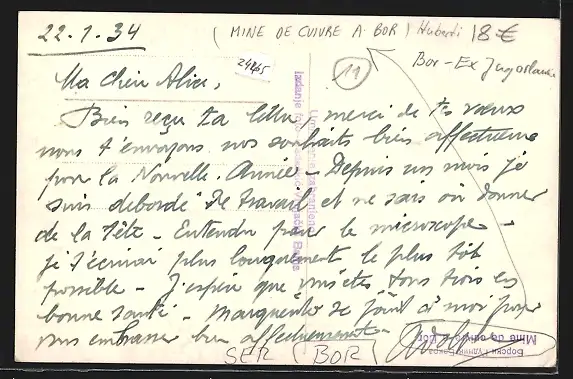 22-1-34 (MINE DE CUIVRE A BOR) 18 €
Bor - Ex Jugoslavie
24465
11
Ma chère Alice,
Bien reçu ta lettre merci de tes vœux
nous t'envoyons nos souhaits bien affectueux
pour la Nouvelle Année - Depuis un mois je
suis débordé de travail et ne sais où donner
de la tête - Entendu pour le microscope -
je t'écrirai plus longuement le plus tôt
possible - J'espère que vous êtes tous trois en
bonne santé - Marguerite se joint à moi pour
vous embrasser bien affectueusement -
SER (BOR)
Mine de cuivre